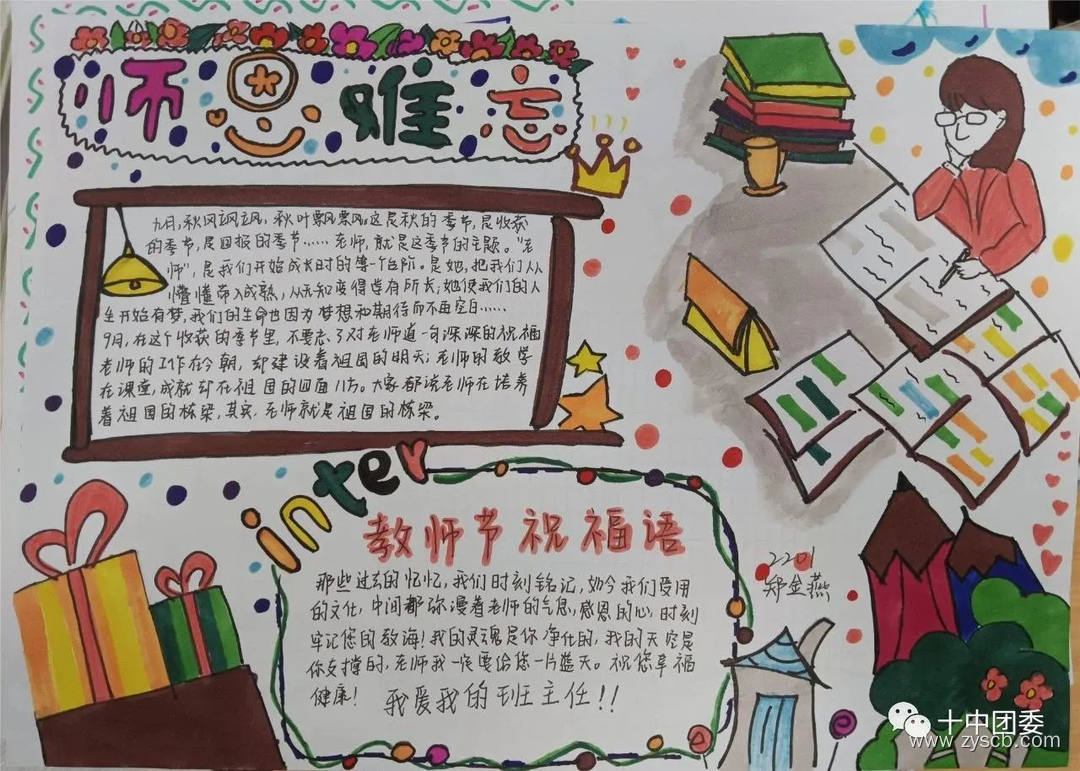 师恩难忘
九月,秋风飒飒,秋叶飘飘。这是秋的季节,是收获
的季节,是回报的季节……老师,就是这季节的主题。“老
师”,是我们开始成长时的第一个台阶。是她,把我们从
懵懂带入成熟,从无知变得学有所长;她使我们的人
生开始有梦,我们的生命也因为梦想和期待而不再空白……
9月,在这个收获的季节里,不要忘了对老师道一句深深的祝福
老师的工作在今朝,却建设着祖国的明天;老师的教学
在课堂,成就却在祖国的四面八方。大家都说老师在培养
着祖国的栋梁,其实,老师就是祖国的栋梁。
inter
教师节祝福语
那些过去的忆忆,我们时刻铭记,如今我们受用
的文化,中间都弥漫着老师的气息,感恩的心,时刻
牢记您的教诲!我的灵魂是你净化的,我的天空是
你支撑的,老师我一定要给您一片蓝天。祝您幸福
健康! 我爱我的班主任!!
2201
郑金燕
十中团委
www.zyscb.com